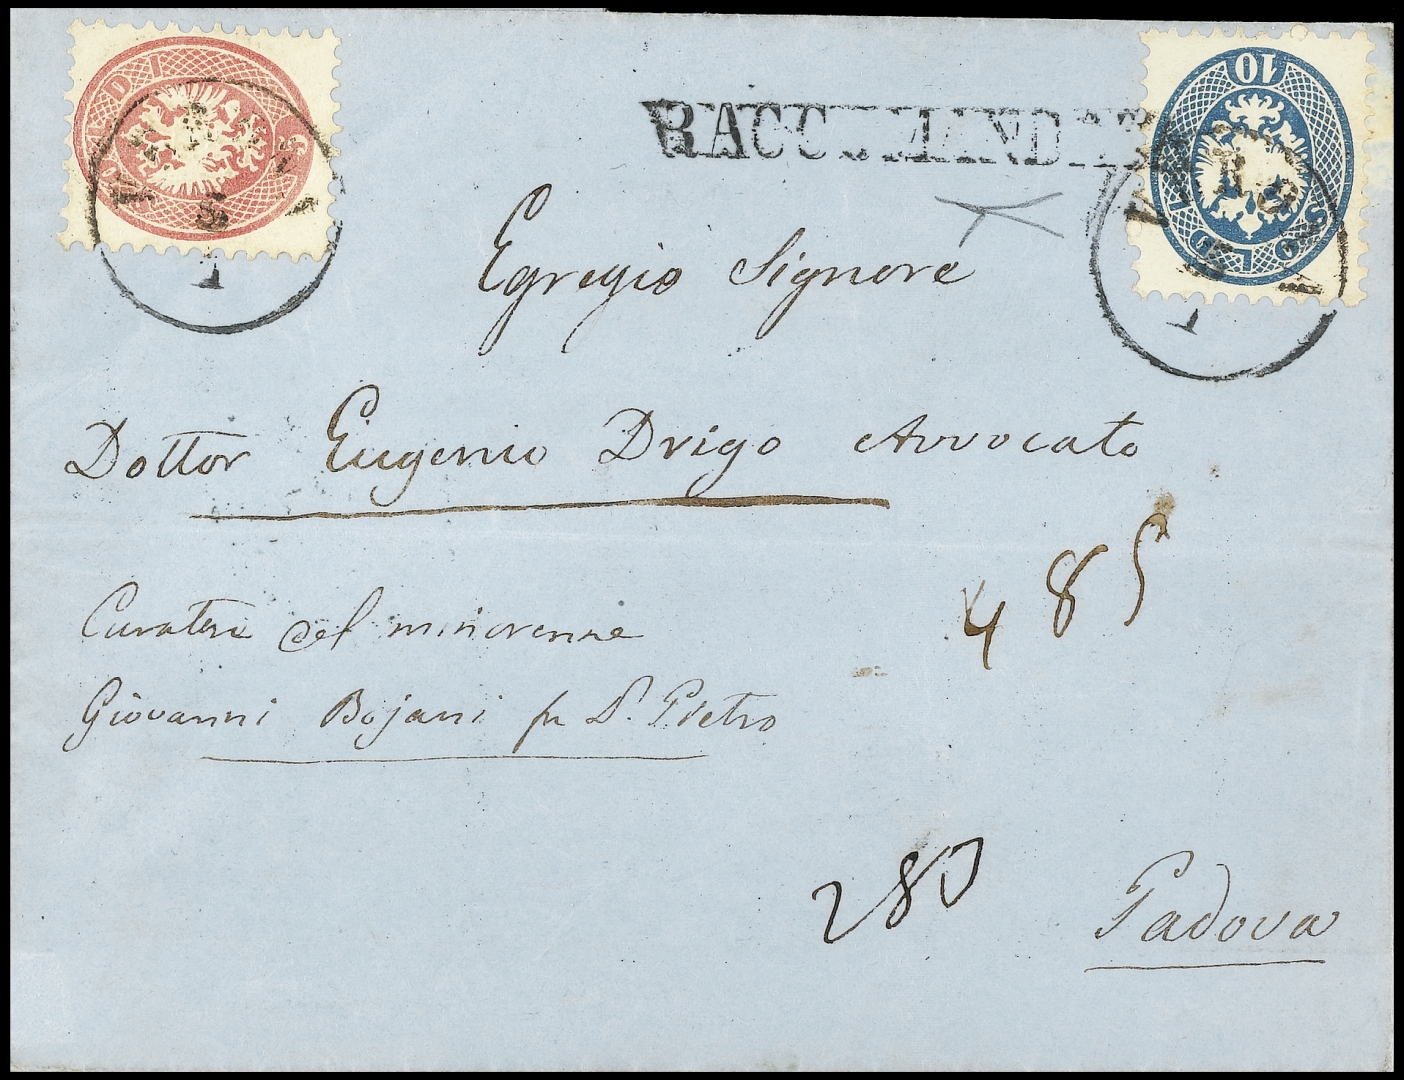 RACCOMANDATA
10
SOLDI
SOLDI
Egregio Signore
Dottor Eugenio Drigo Avvocato
485
Curatore del minorenne
Giovanni Bojani fu S. Pietro
280
Padova